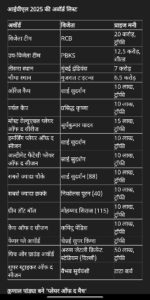 आईपीएल 2025 की अवॉर्ड लिस्ट
अवॉर्ड विजेता प्राइज मनी
विजेता टीम RCB 20 करोड़, ट्रॉफी
उप-विजेता टीम PBKS 12.5 करोड़, शील्ड
तीसरा स्थान मुंबई इंडियंस 7 करोड़
चौथा स्थान गुजरात टाइटन्स 6.5 करोड़
ऑरेंज कैप साई सुदर्शन 10 लाख, ट्रॉफी
पर्पल कैप प्रसिद्ध कृष्णा 10 लाख, ट्रॉफी
मोस्ट वैल्यूएबल प्लेयर ऑफ द सीजन सूर्यकुमार यादव 15 लाख, ट्रॉफी
इमर्जिंग प्लेयर ऑफ द सीजन साई सुदर्शन 10 लाख, ट्रॉफी
अल्टीमेट फैंटेसी प्लेयर ऑफ द सीजन साई सुदर्शन 10 लाख, ट्रॉफी
सबसे ज्यादा चौके साई सुदर्शन (88) 10 लाख, ट्रॉफी
सबसे ज्यादा छक्के निकोलस पूरन (40) 10 लाख, ट्रॉफी
ग्रीन डॉट बॉल मोहम्मद सिराज (115) 10 लाख, ट्रॉफी
कैच ऑफ द सीजन कामिंदु मेंडिस 10 लाख, ट्रॉफी
फेयर प्ले अवॉर्ड चेन्नई सुपर किंग्स 10 लाख, ट्रॉफी
पिच और ग्राउंड अवॉर्ड अरुण जेटली क्रिकेट स्टेडियम (दिल्ली) 50 लाख, ट्रॉफी
सुपर स्ट्राइकर ऑफ द सीजन वैभव सूर्यवंशी टाटा कर्व
क्रुणाल पांड्या बने 'प्लेयर ऑफ द मैच'